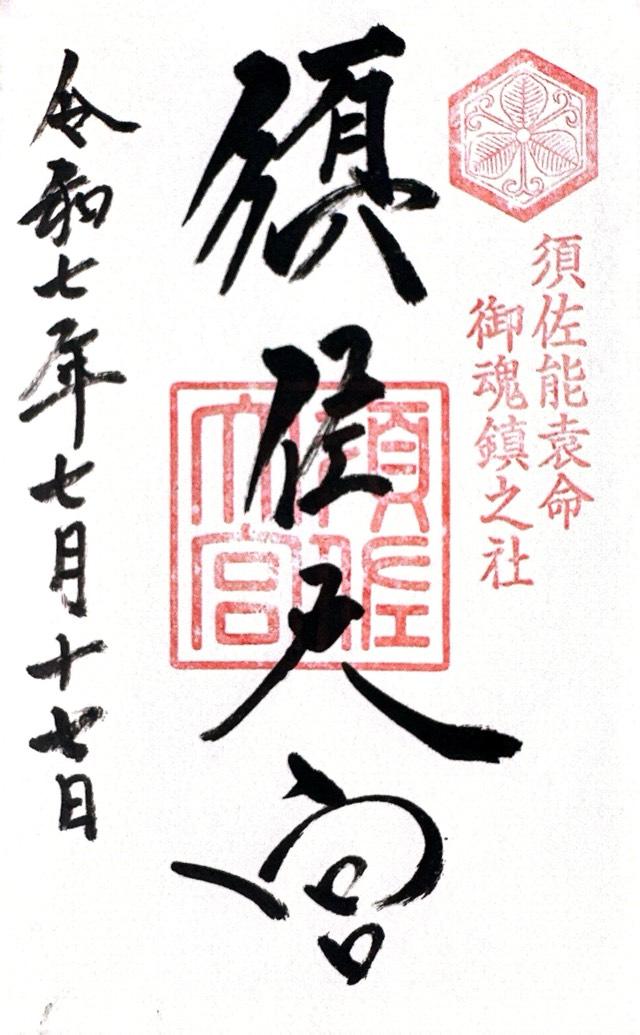 須佐能袁命
御魂鎮之社
須佐大宮
須佐大宮
令和七年七月十七日